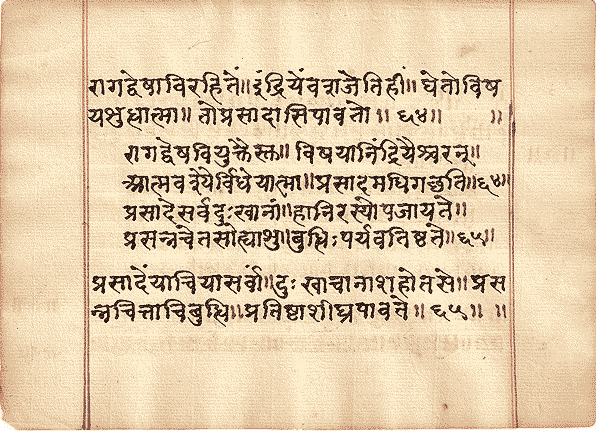 रागद्वेषाविरहितें॥ इंद्रियेंवराजैतिहीं॥ घेतोविष
यशुधात्मा॥ तोप्रसादासिपावतो॥ ६४॥ ॥
रागद्वेषवियुक्तैस्तु॥ विषयानिंद्रियैश्चरन्॥
आत्मवश्यैर्विधेयात्मा॥ प्रसादमधिगछति॥ ६४॥
प्रसादेसर्वदुःखानां॥ हानिरस्योपजायते॥
प्रसन्नचेतसोह्याशु॥ बुधिःपर्यवतिष्ठते॥ ६५॥
प्रसादेंयाचियासर्वा॥ दुःखाचानाशहोतसे॥ प्रस
न्नचित्ताचिबुधि॥ प्रतिष्ठाशीघ्रपावते॥ ६५॥ ॥